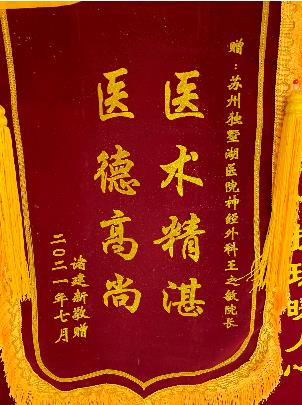 赠：苏州独墅湖医院神经外科王之敏院长
医术精湛
医德高尚
诸建新敬赠
二〇二一年七月